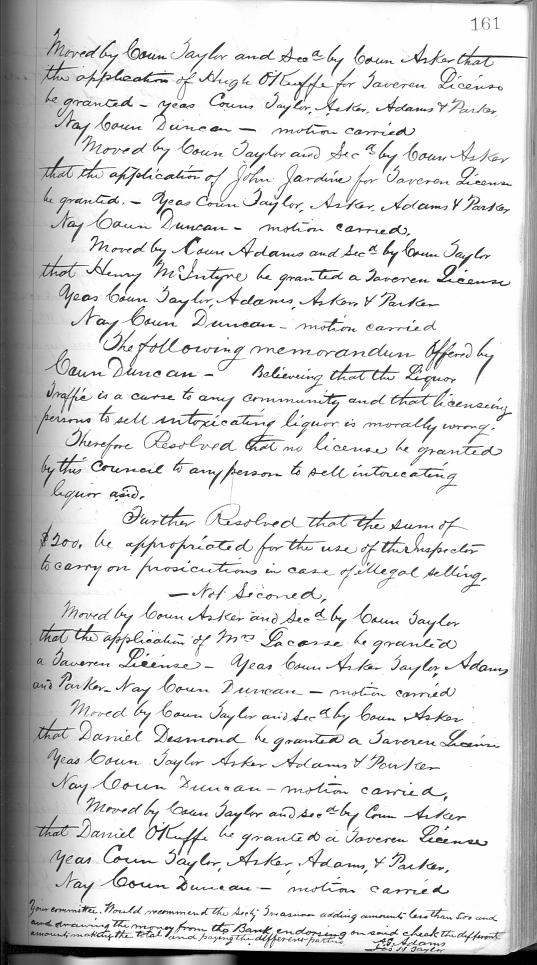 161
Moved by Coun Taylor and Secd by Coun Asker that
the application of Hugh O'Kuffe for Taveren License
be granted - yeas Couns Taylor, Asker, Adams & Parker.
Nay Coun Duncan - motion carried
Moved by Coun Taylor and Secd by Coun Asker
that the application of John Jardine for Taveren License
be granted. - Yeas Coun Taylor, Asker, Adams & Parker
Nay Coun Duncan - motion carried.
Moved by Coun Adams and Secd by Coun Taylor
that Henry McIntyre be granted a Taveren License
Yeas Coun Taylor, Adams, Asker & Parker
Nay Coun Duncan - motion carried
The following memorandum Offered by
Coun Duncan - Believeing that the Liquor
Traffic is a curse to any community and that licenseing
persons to sell intoxicating liquor is morally wrong.
Therefore Resolved that no license be granted
by this Council to any person to sell intoxecating
liquor and.
Further Resolved that the sum of
$200. be appropriated for the use of the Inspector
to carry on prosicutions in case of illegal selling.
- Not Seconed,
Moved by Coun Asker and Secd by Coun Taylor
that the application of Mrs Lacasse be granted
a Taveren License - Yeas Coun Asker Taylor, Adams
and Parker - Nay Coun Duncan - motion carried
Moved by Coun Taylor and Secd by Coun Asker
that Daniel Desmond be granted a Taveren License
Yeas Coun Taylor Asker Adams & Parker
Nay Coun Duncan - motion carried,
Moved by Coun Taylor and Secd by Coun Asker
that Daniel O'Kuffe be granted a Taveren License
Yeas Coun Taylor, Asker, Adams, & Parker,
Nay Coun Duncan - motion carried
Your committee. Would recommend the Secty Treasurer adding amounts less than 500 and
and drawing the money from the Bank endorsing on said check the different
amounts making the total and paying the different parties
Adams
Taylor